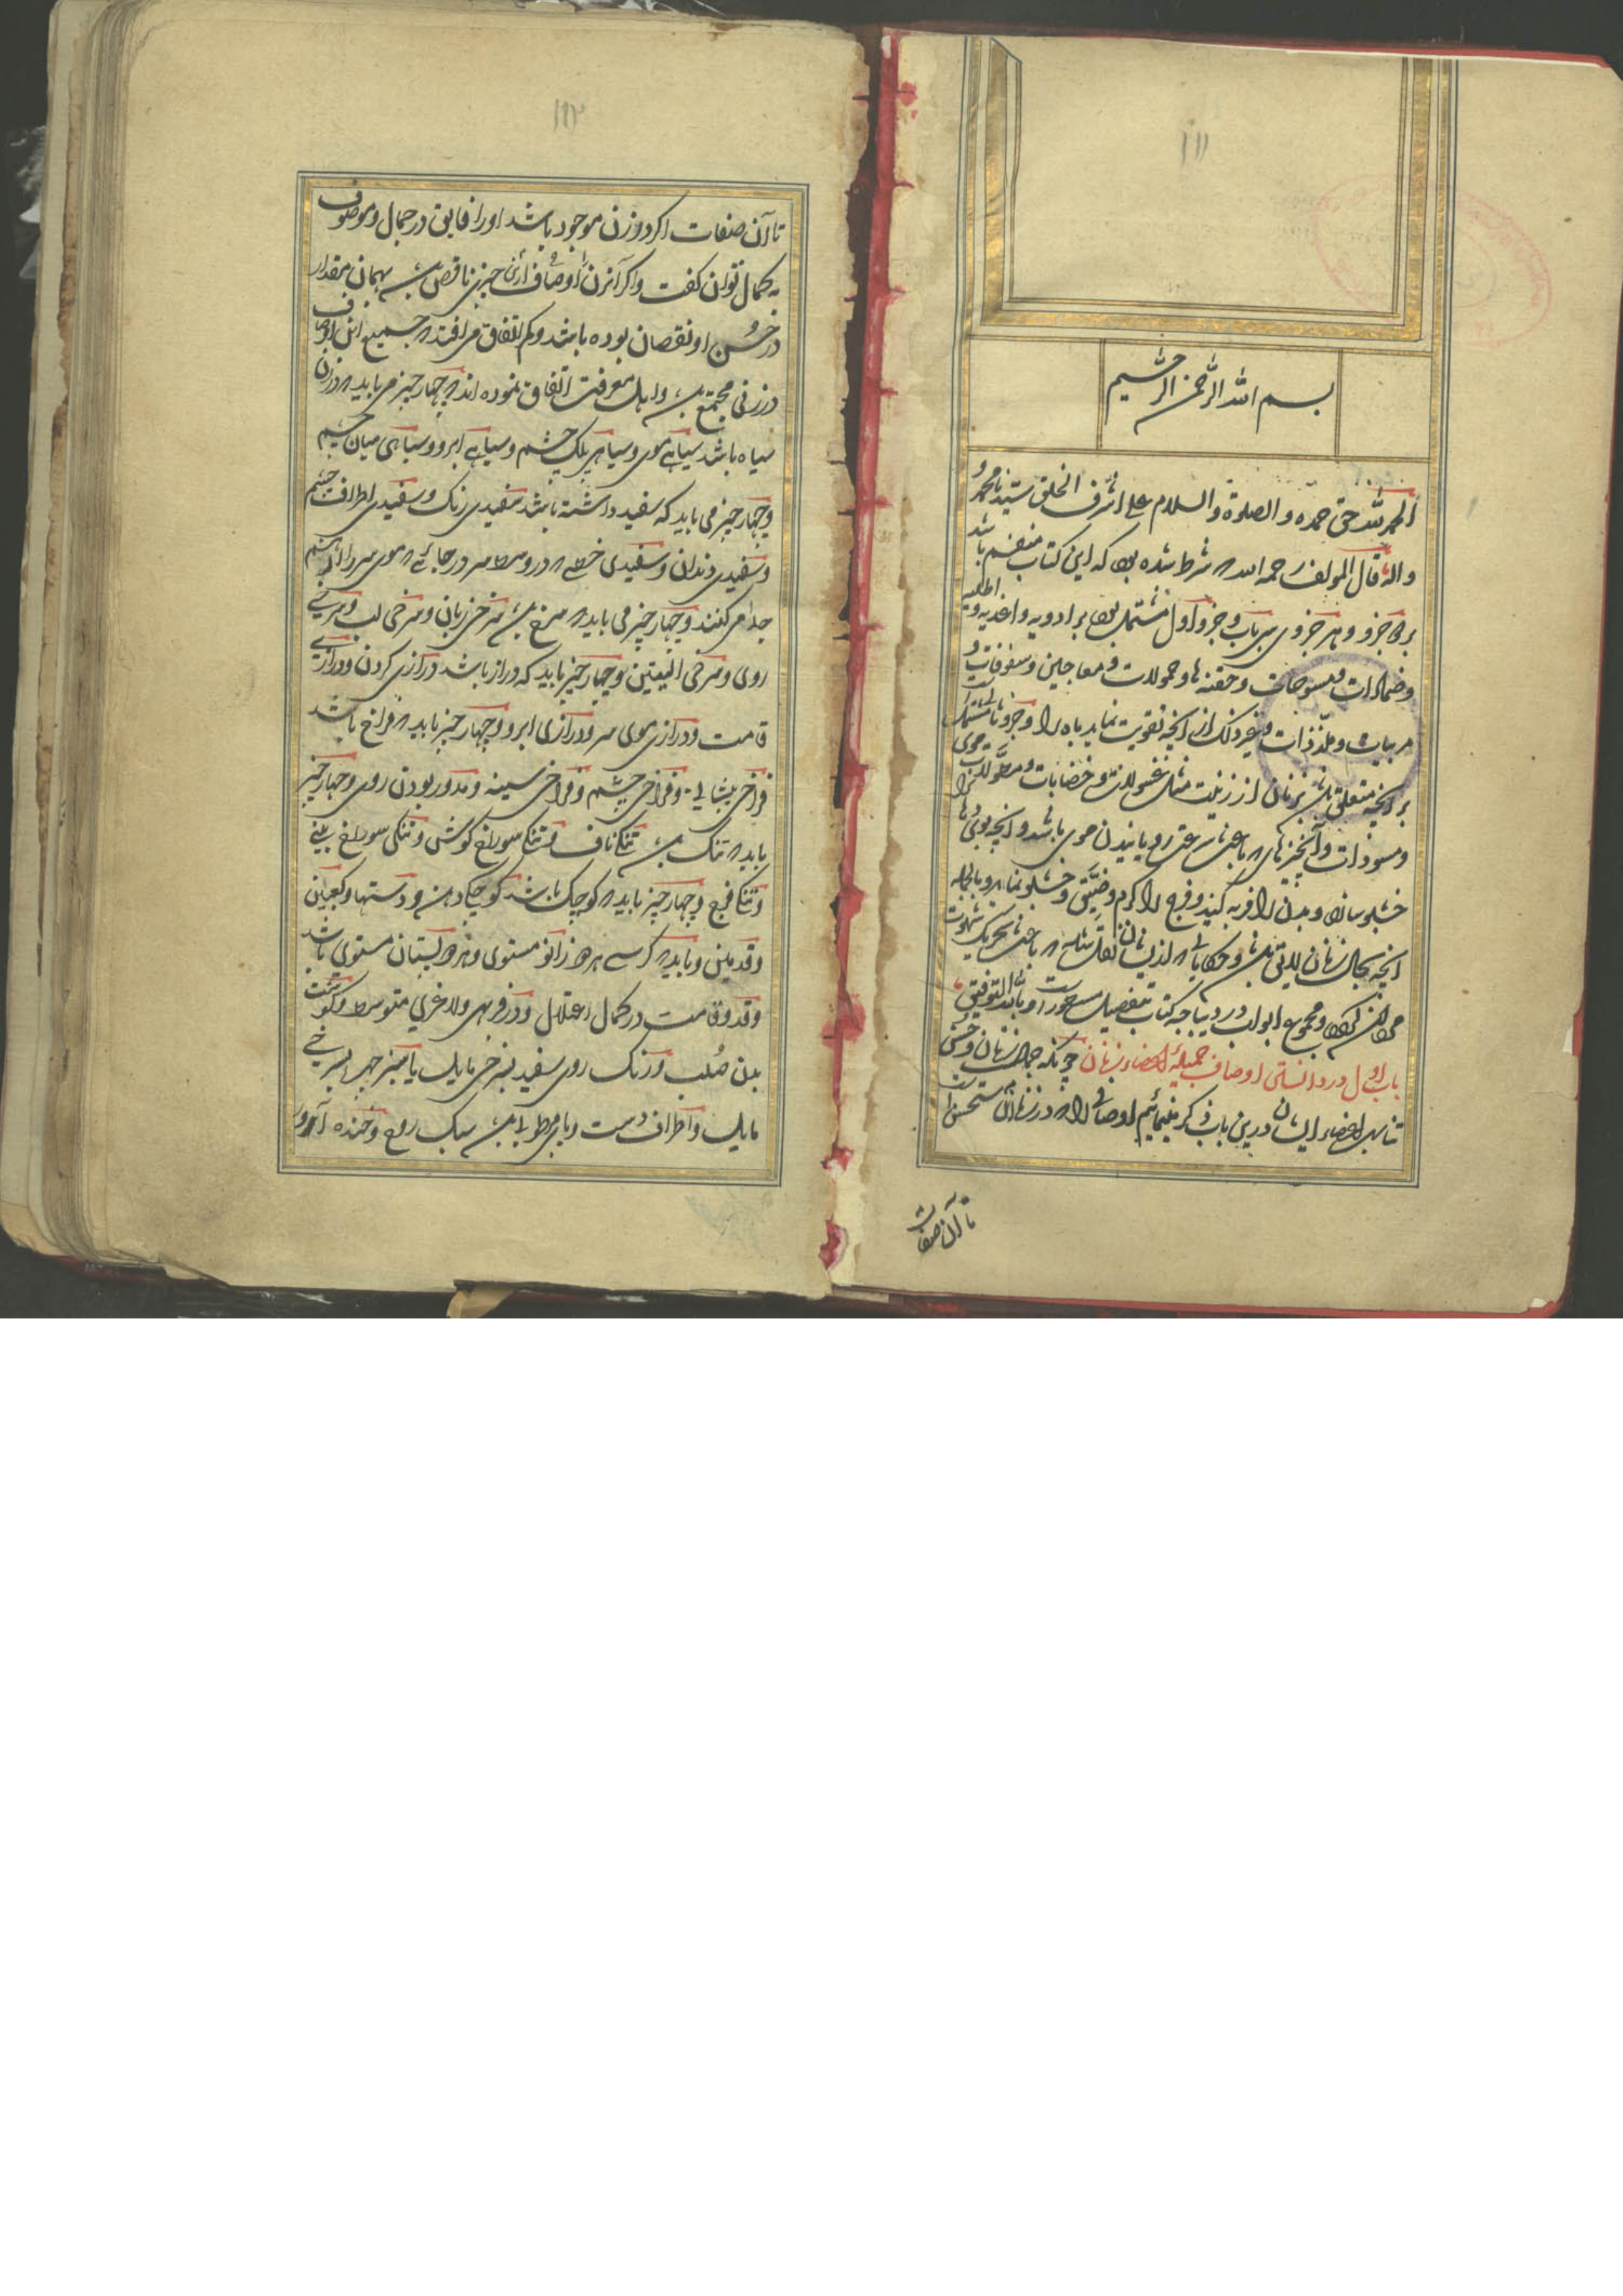 ۱۱۱
بسم الله الرحمن الرحیم
الحمد لله حق حمده و الصلوة و السلام علی اشرف الخلق سیدنا محمد و
واله قال المولف رحمه الله شرط شده بود که این کتاب منقسم باشد
بر دو جزو و هر جزوی سی باب و جزو اول مشتمل بود بر ادویه و اغدیه و اطلیه
و ضمادات و مسوحات و حقنه ها و حمولات و معاجین و سفوفات و
مربیات و ملذذات و غیر ذلک از انچه تقویت نماید باه را و جزو ثانی مشتمل است
بر انچه متعلق باشد بزنان از زینت مثل غسولات و خضابات و مطولات موی
و مسودات و آنچیزهای که باعث سرعت رویانیدن موی باشد و انچه بویها
خشبو سازد و بدن را فربه کند و فرج را کرم و ضیق و خشبو نماید و بالجمله
انچه بحال زنان لایق باشد و حکایاتی که از ایشان نقل شده که باعث تحریک شهوت
مردان شود و مجموع ابواب در دیباجه کتاب بتفصیل مسطور است و بالله التوفیق
باب اول در دانستن اوصاف جمیله اعضاء زنان چونکه جمال زنان و حسن
تناسب اعضاء ایشان درین باب ذکر مینمائیم اوصافی را که در زنان مستحسن است
تا آن صفات
۱۱۲
تا آن صفات اکر در زن موجود باشد او را فایق در جمال و موصوف
به کمال توان کفت و اکر آنزن را اوصاف ازین چیزی ناقص باشد بهمان مقدار
در حسن او نقصان بوده باشد و کم اتفاق می افتد که جمیع این اوصاف
در زنی مجتمع باشد و اهل معرفت اتفاق نموده اند که چهار چیز می باید که در زن
سیاه باشد سیاهی موی و سیاهی پلک چشم و سیاهی ابرو و سیاهی میان چشم
و چهار چیز می باید که سفید داشته باشد سفیدی رنک و سفیدی اطراف چشم
و سفیدی دندان و سفیدی خطی که در وسط سر در جائی که موی سر را از هم
جدا می کنند و چهار چیز می باید که سرخ باشد سرخی زبان و سرخی لب و سرخی
روی و سرخی الیتین و چهار چیز باید که دراز باشد درازی کردن و درازی
قامت و درازی موی سر و درازی ابرو و چهار چیز باید که فراخ باشد
فراخی پیشانی و فراخی چشم و فراخی سینه و مدور بودن روی و چهار چیز
باید که تنک باشد تنکی ناف و تنکی سوراخ کوش و تنکی سوراخ بینی
و تنکی فرج و چهار چیز باید که کوچک باشد کوچکی دهن و دستها و کعبین
و قدمین و باید که کرسی هر دو زانو مستوی و هر دو پستان مستوی باشد
و قد و قامت در کمال اعتدال و در فربهی و لاغری متوسط و کوشت
بدن صلب و رنک روی سفید بسرخی مایل یا سبز چهره بسرخی
مایل و اطراف دست و پا مرطوب باشد سبک روح و خنده آور